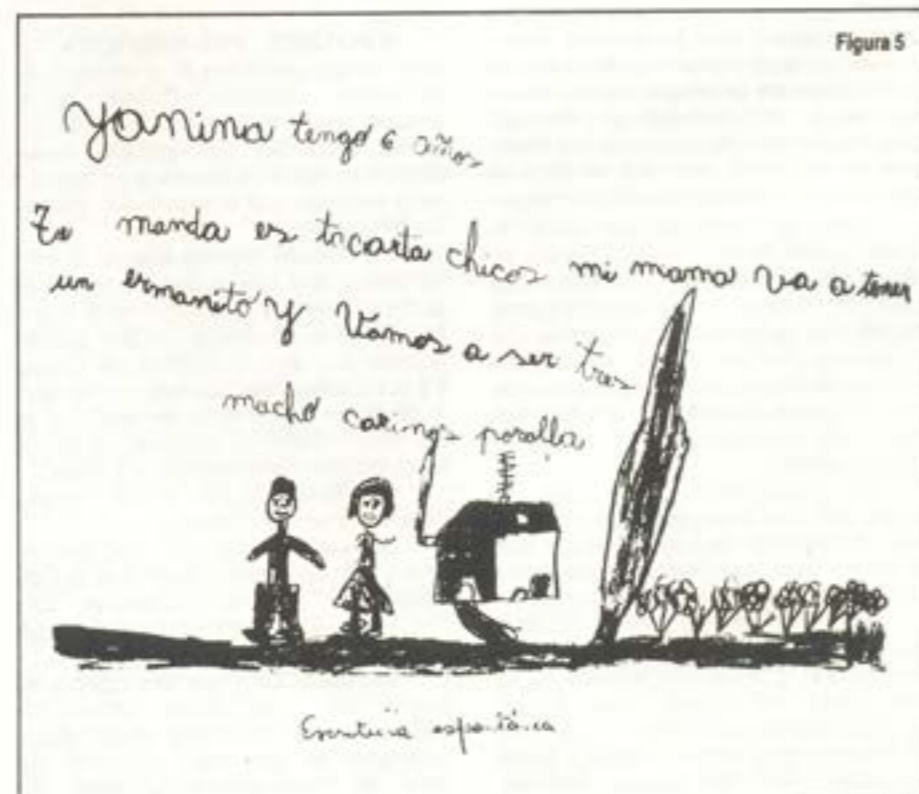 Figura 5
Yanina tengo 6 años
Te manda es tacarta chicos mi mama va a tener
un ermanito y Vamos a ser tres
macho carinos poralla
Escritura espontánea